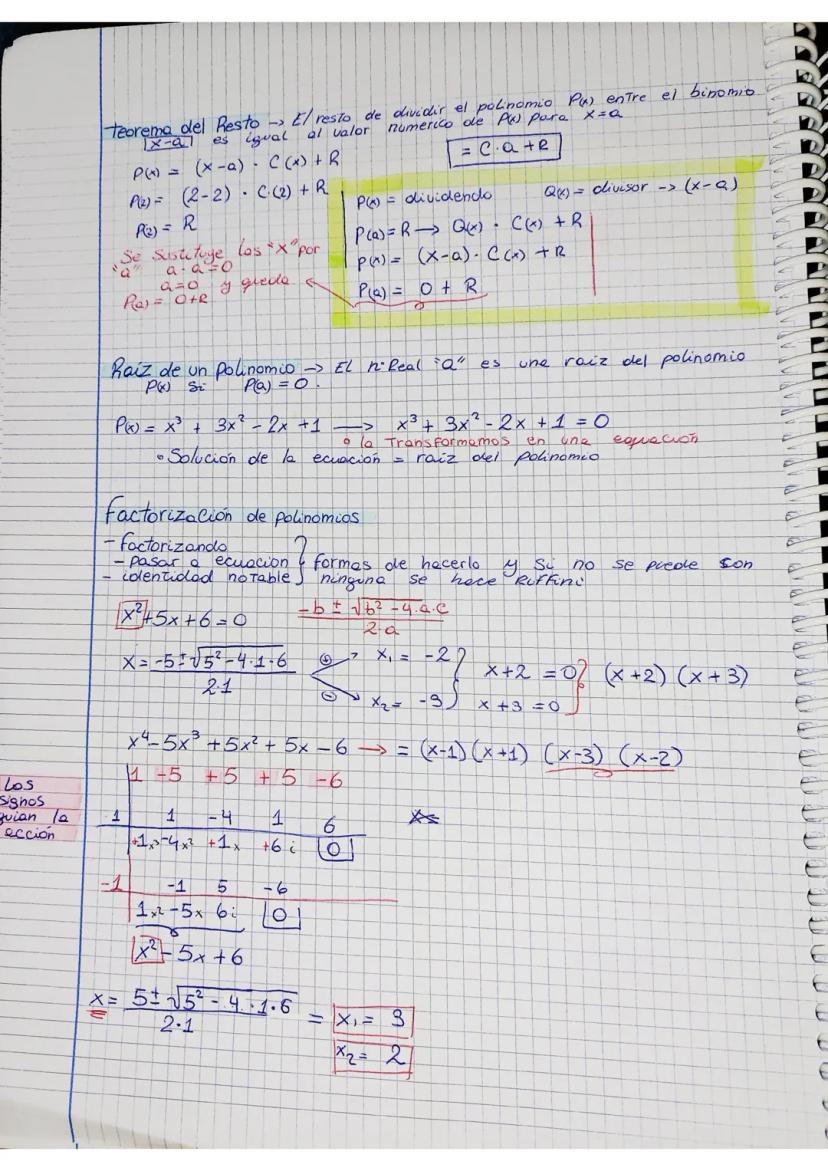 teorema del Resto → El resto de dividir el polinomio P(x) entre el binomio
x-a es igual al valor numerico de P(x) para x=a
= C·a+R
P(x) = (x-a) · C(x) + R
P(2) = (2-2) · C·(2) + R
P(2) = R
Se sustituye las "x" por
"a" a-a=0
a=0 y queda
P(a) = 0+R
P(x) = dividendo Q(x) = divisor -> (x-a)
P(a)=R → Q(x) · C(x) + R
P(x) = (x-a) · C(x) + R
P(a) = 0 + R
Raiz de un polinomio → El nº Real "a" es una raiz del polinomio
P(x) si P(a) = 0.
P(x) = x³ + 3x² - 2x + 1 → x³ + 3x² - 2x + 1 = 0
la Transformamos en una equación
• Solución de la ecuación = raiz del polinomio
factorización de polinomios
- factorizando
- pasar a ecuacion } formas de hacerlo y si no se puede con
- identidad notable } ninguna se hace Ruffini
x²+5x+6=0 -b ± √b²-4·a·c / 2·a
x = -5±√5²-4·1·6 / 2·1 ⊕ x₁ = -2 x+2 = 0 (x+2) (x+3)
⊖ x₂ = -3 x+3=0
x⁴-5x³+5x²+5x-6 → = (x-1)(x+1) (x-3) (x-2)
1 -5 +5 +5 -6
Los
signos
guian la
acción
1 1 -4 1 6
+1x³-4x² +1x +6i 0
-1 -1 5 -6
1x²-5x 6i 0
x²-5x+6
x = 5±√5²-4·1·6 / 2·1 = x₁ = 3
x₂ = 2